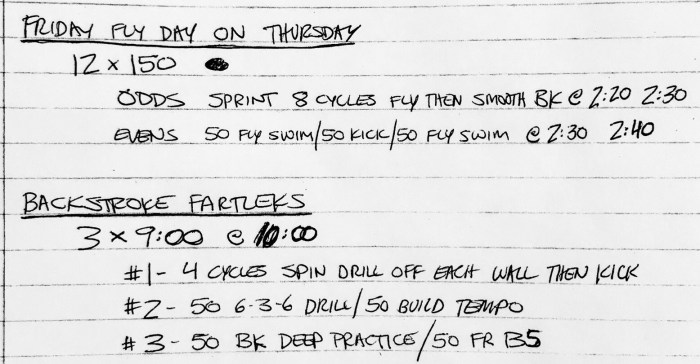 FRIDAY FLY DAY ON THURSDAY
12 x 150
ODDS SPRINT 8 CYCLES FLY THEN SMOOTH BK @ 2:20 2:30
EVENS 50 FLY SWIM/50 KICK/50 FLY SWIM @ 2:30 2:40
BACKSTROKE FARTLEKS
3 x 9:00 @ 10:00
#1- 4 CYCLES SPIN DRILL OFF EACH WALL THEN KICK
#2- 50 6-3-6 DRILL/50 BUILD TEMPO
#3- 50 BK DEEP PRACTICE/50 FR B5